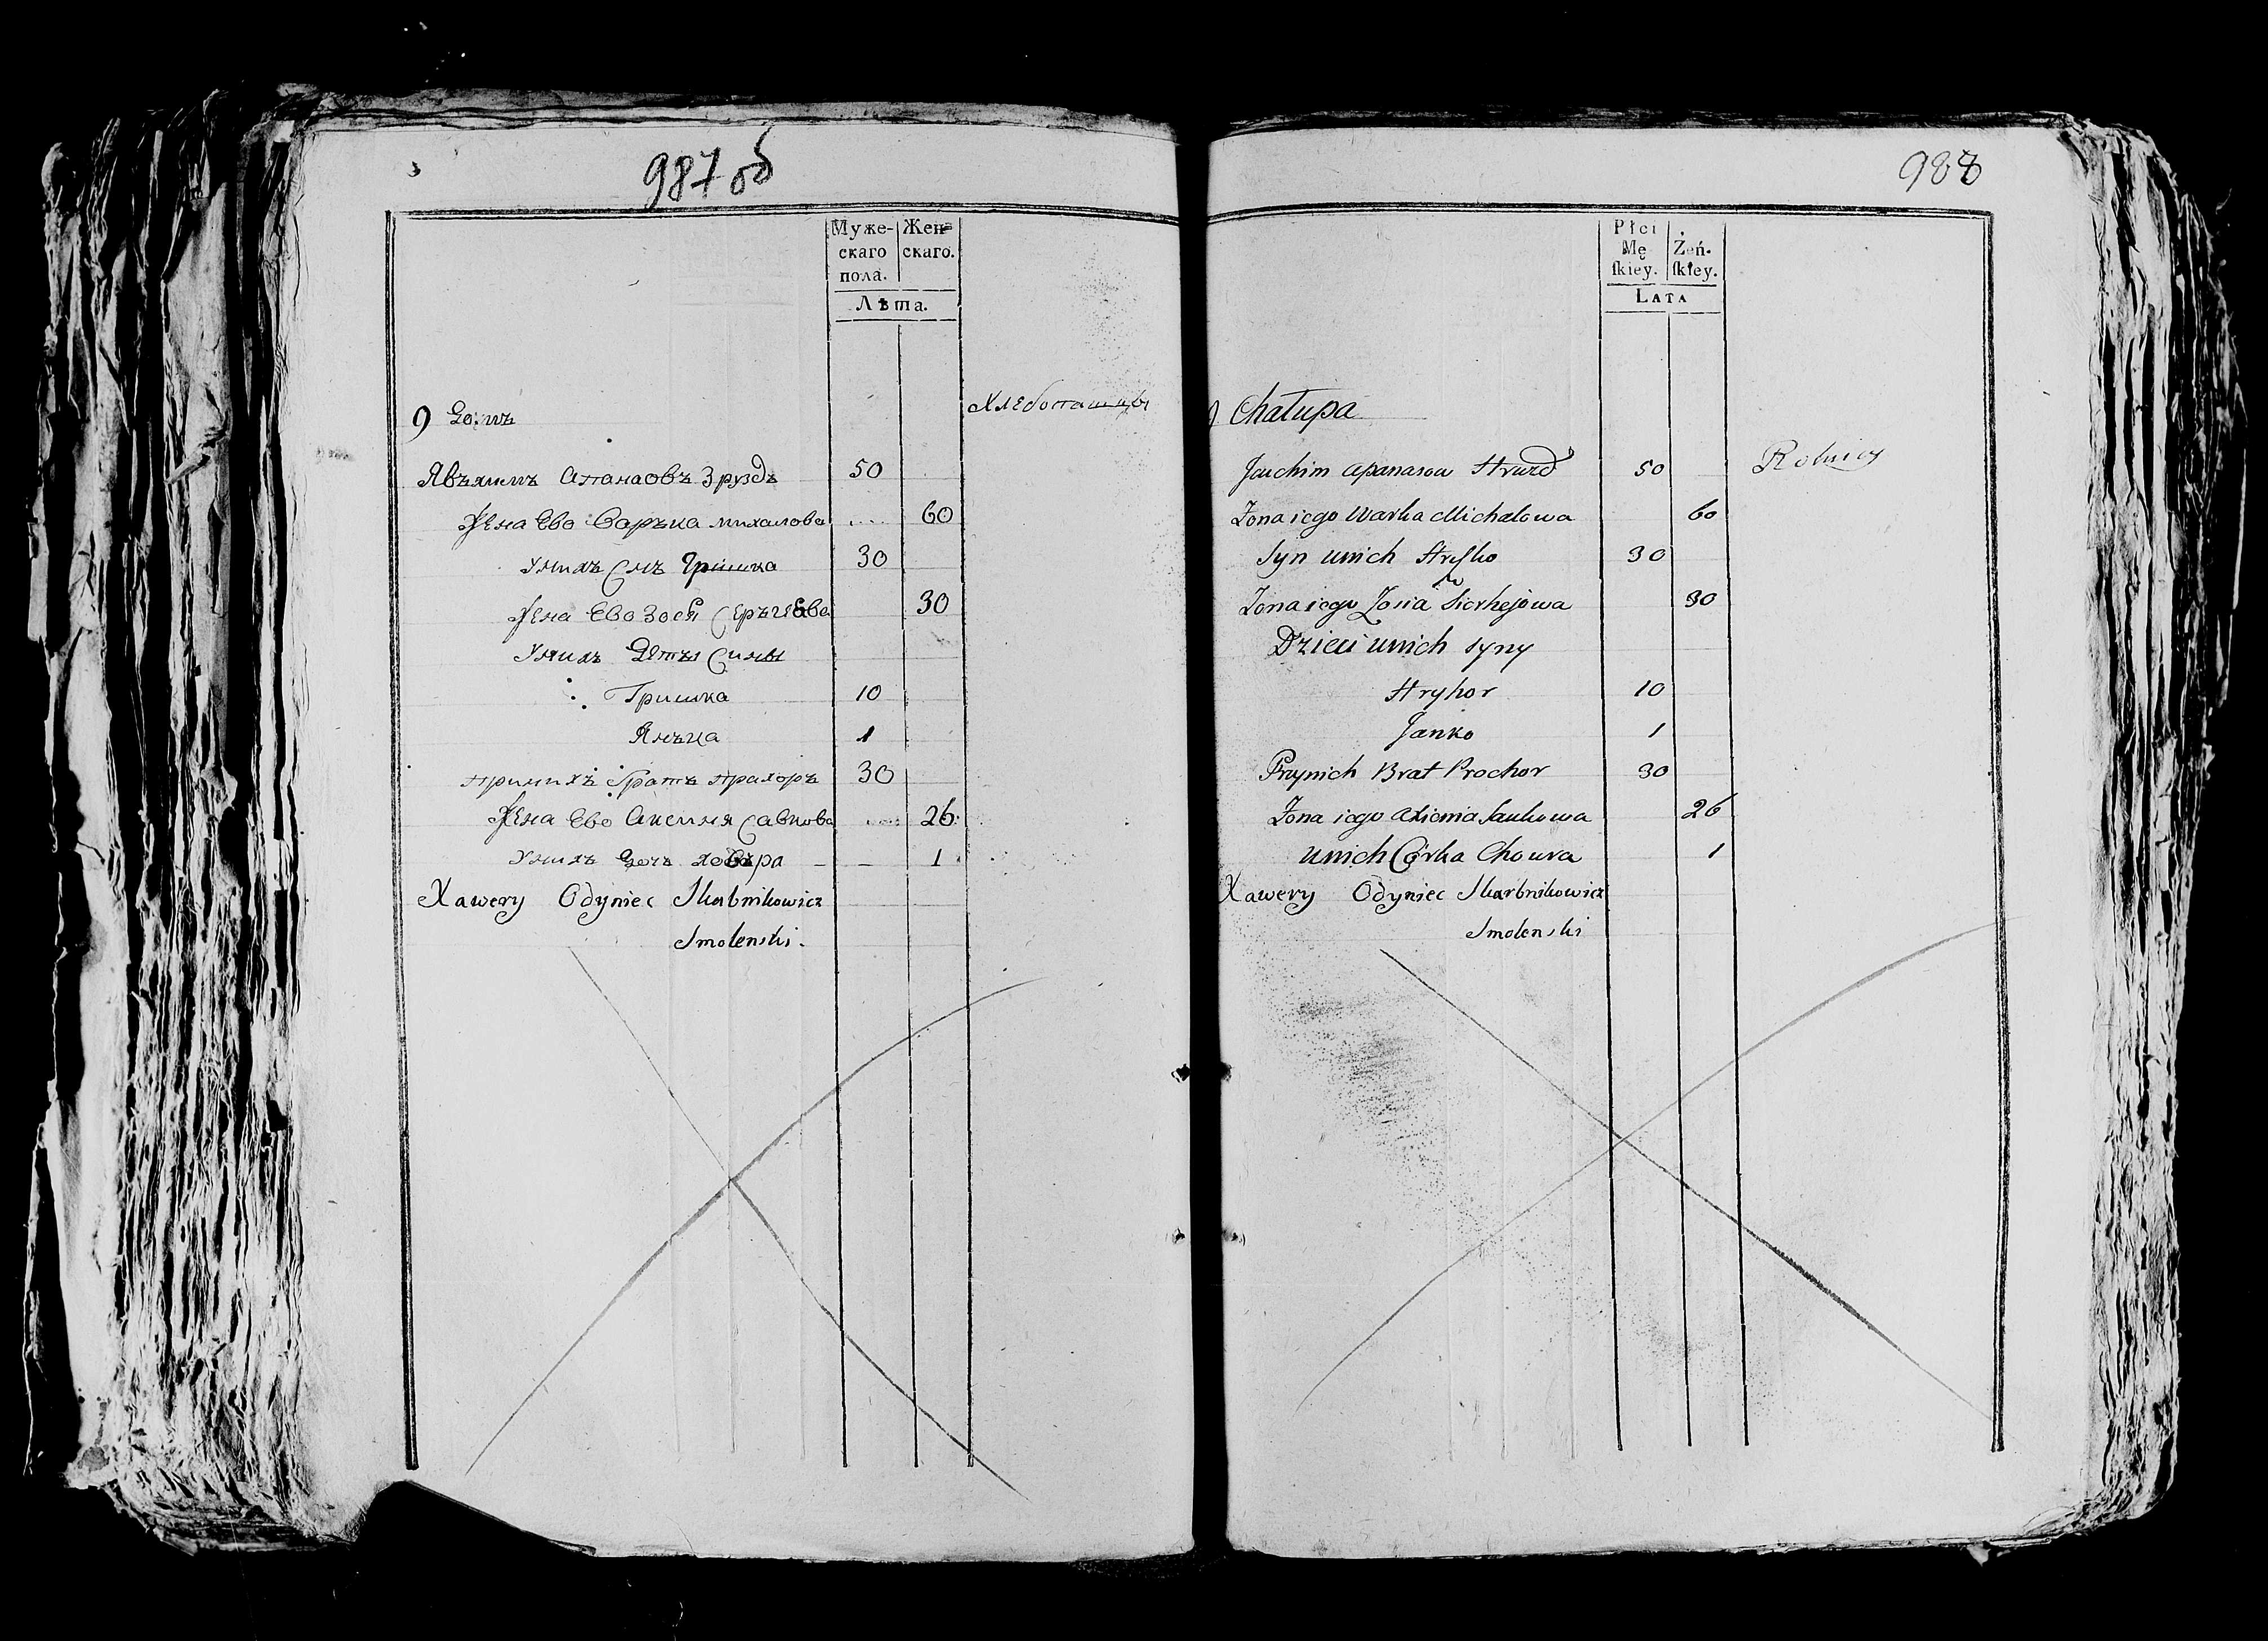 987 об
Муже- Жен-
скаго скаго.
пола.
Лѣта.
9 Домъ Хлебопашцы
Явъхимъ Апанаовъ Груздъ 50
Жена Ево Варъка михалова .... 60
Унихъ Снъ Гришка 30
Жена Ево Зося Серъгеева 30
Унихъ Деты Сины
Гришка 10
Янъка 1
принихъ братъ прахоръ 30
Жена Ево Аксиня Савкова .... 26
Унихъ дочъ ховъра – – 1
Xawery Odyniec Skarbnikowicz
Smolenski.
988
Płci
Mę Żeń-
ſkiey. ſkiey.
LATA
9 Chałupa
Joachim Apanasow Hruzd 50 Rolnicy
Zona iego Warka Michałowa 60
Syn unich Hryſko 30
Zona iego Zosia Sierhejowa 30
Dzieci unich syny
Hryhor 10
Janko 1
Przynich Brat Prochor 30
Zona iego Axienia Saukowa 26
unich Córka Chowra 1
Xawery Odyniec Skarbnikowicz
Smolenski